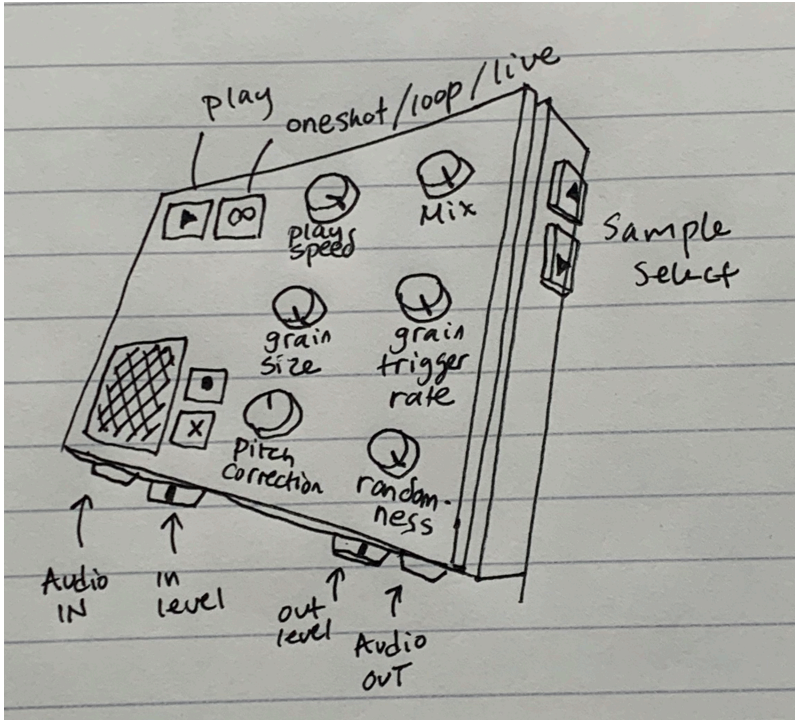 play
oneshot/loop/live
∞
play
speed
Mix
Sample
Select
grain
size
grain
trigger
rate
x
pitch
correction
random-
ness
Audio
IN
in
level
out
level
Audio
OUT